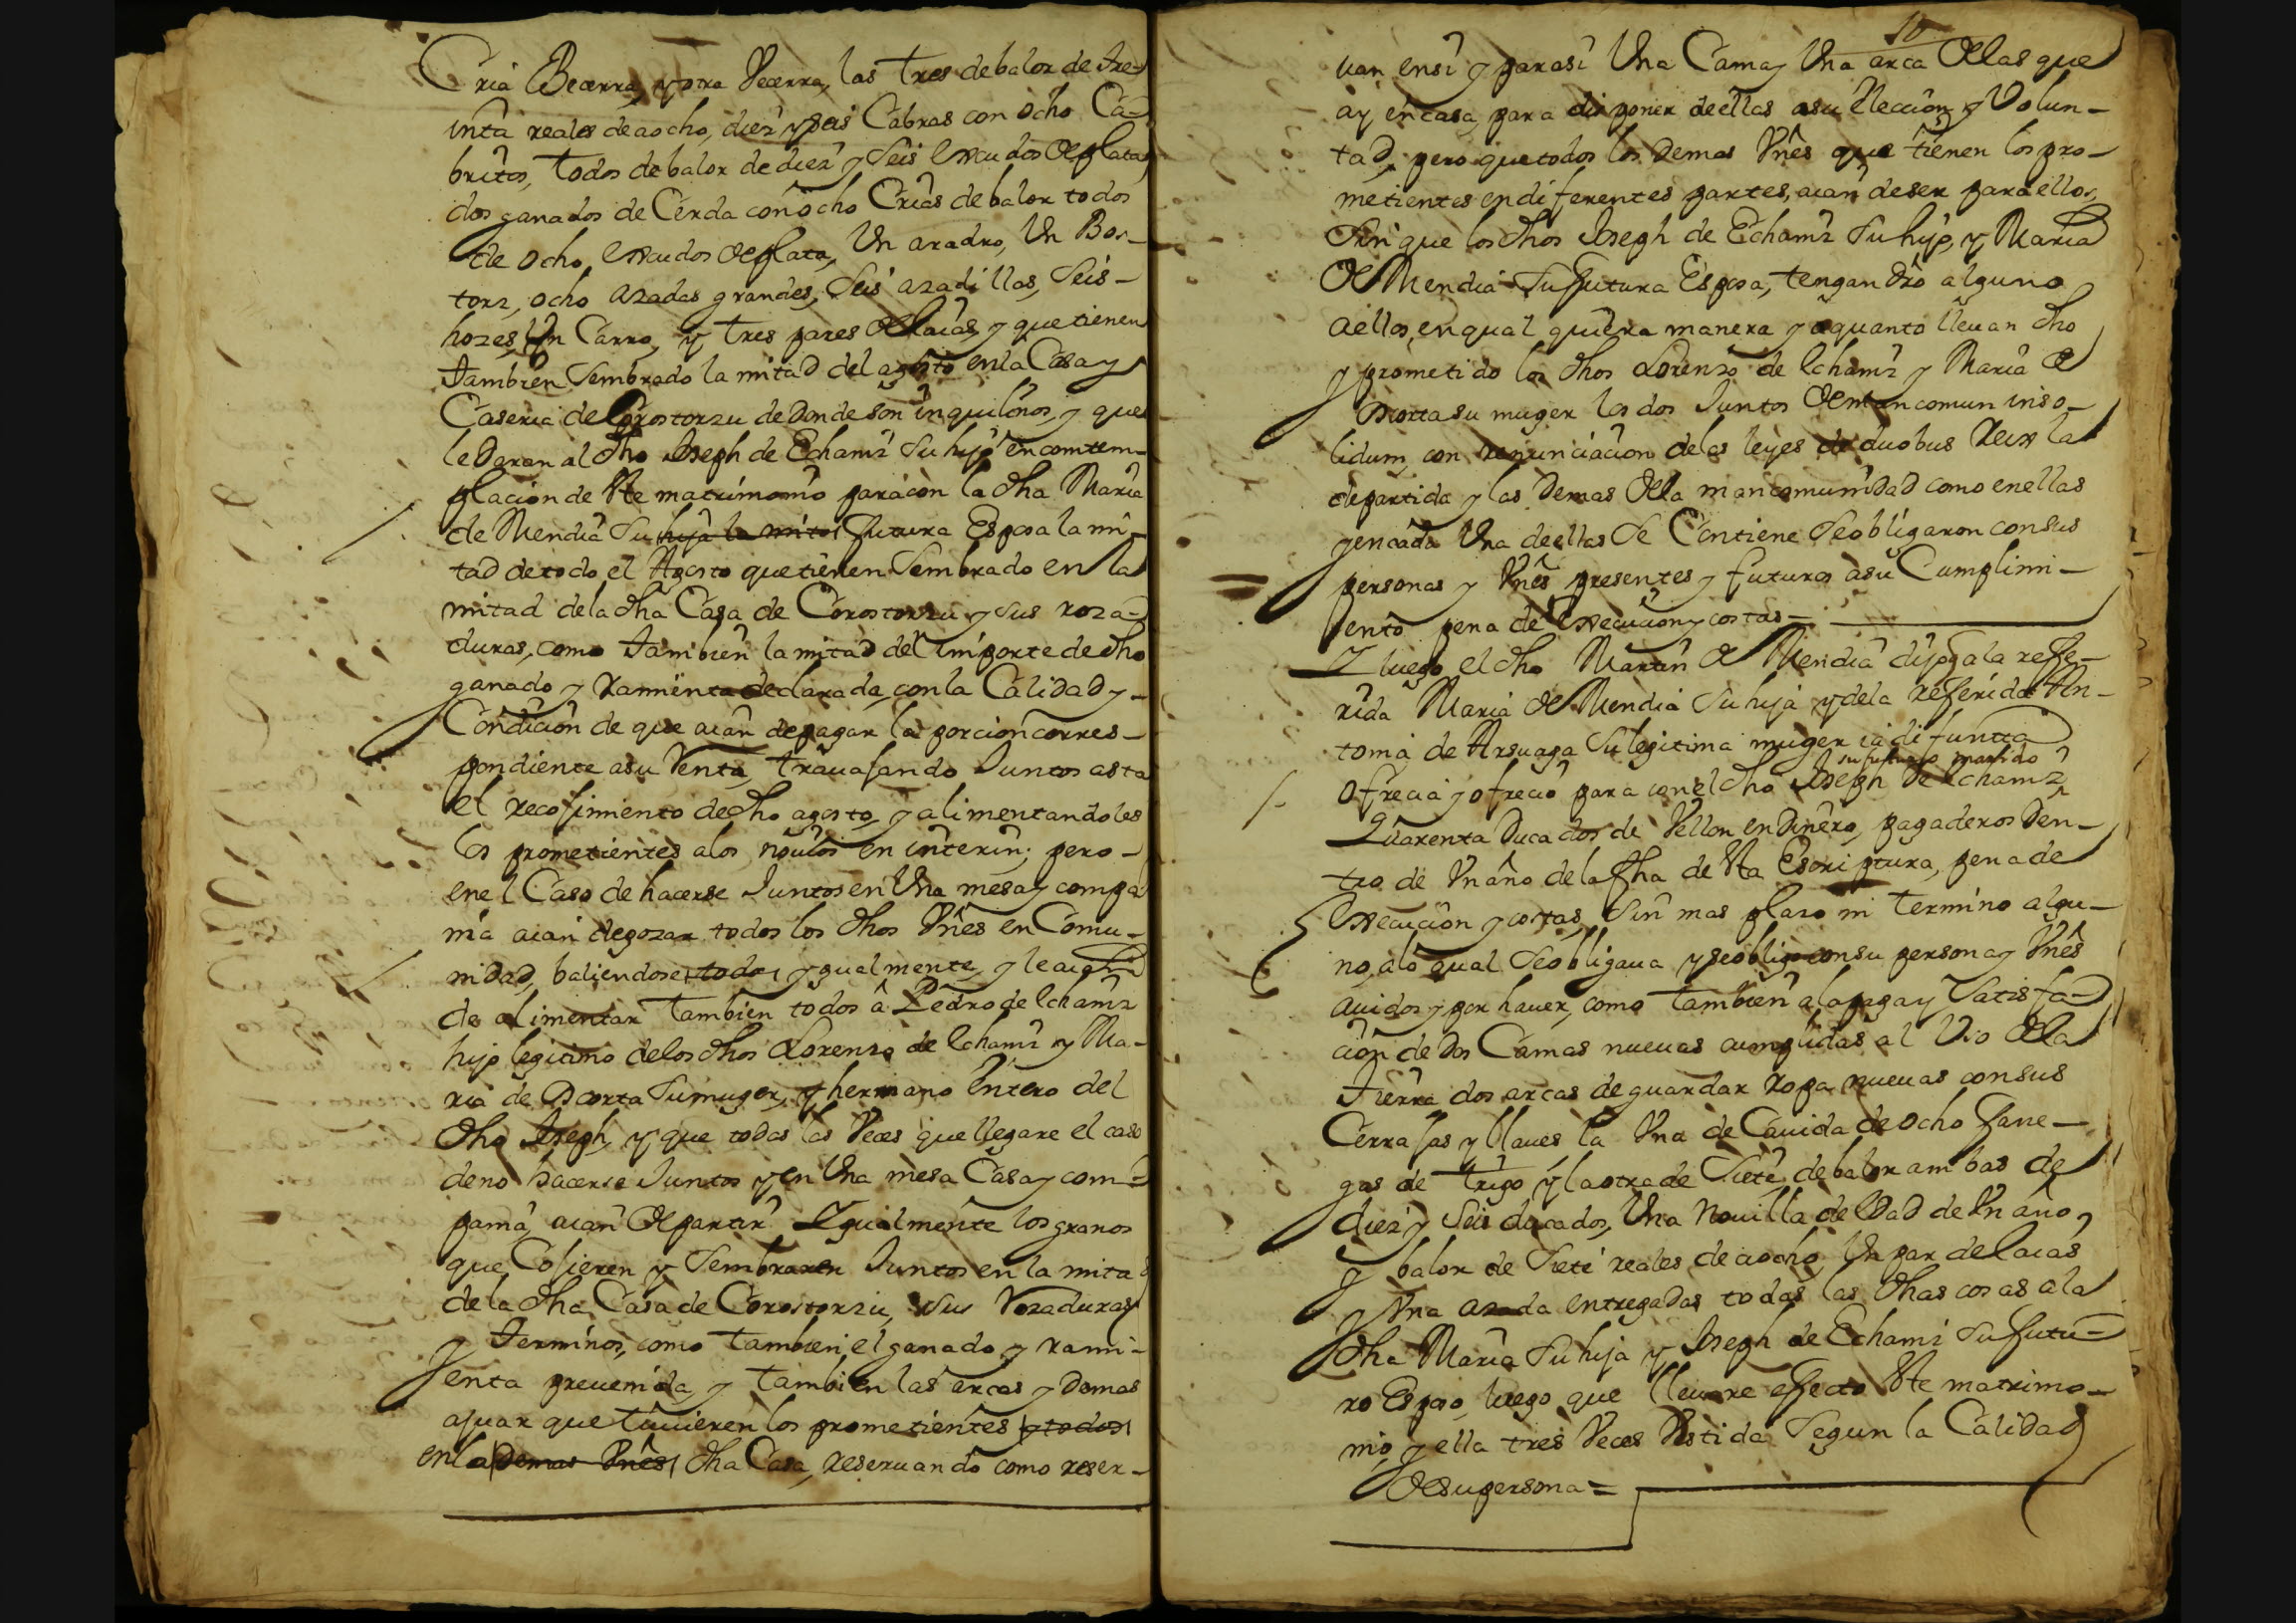 Cria Becerra, y otra Vecerra, las tres de balor de tre-
inta reales de a ocho, diez y seis Cabras con ocho Ca-
britos, todos de balor de diez y seis escudos de plata,
dos ganados de Cerda con ocho Crias de balor todos
de ocho escudos de plata, Un aradro, Un Bos-
torz, ocho azadas grandes, seis azadillas, seis
hozes, Un Carro, y tres pares de laias, y que tienen
tambien sembrado la mitad del agosto en la Casa y
Caseria de Corostorzu de donde son inquilinos, y que
le daran al dho Joseph de Echamiz su hijo en comtem-
placion de este matrimonio para con la dha Maria
de Mendia su hija la mitad futura Esposa la mi-
tad de todo el Agosto que tienen sembrado en la
mitad de la dha Casa de Corostorzu y sus roza-
duras, como tambien la mitad del importe de dho
ganado y ramienta declarada, con la Calidad y
Condicion de que aian de pagar la porcion corres-
pondiente a su Venta, travajando Juntos asta
el recojimiento de dho agosto, y alimentandoles
los prometientes a los novios en interin; pero
en el Caso de hacerse Juntos en Una mesa y compa
nia aian de gozar todos los dhos Vnes en Comu-
nidad, baliendose todos ygualmente, y le aian
de alimentar tambien todos a Pedro de Echamiz
hijo legitimo de los dhos Lorenzo de Echamiz y Ma-
ria de Dorta su muger, y hermano entero del
dho Joseph, y que todas las Veces que llegare el caso
de no hacerse Juntos y en Una mesa Casa y com-
pania, aian de partir Igualmente los granos
que Cojieren y Sembraren Juntos en la mitad
de la dha Casa de Corostorzu, sus Rozaduras
y terminos, como tambien el ganado y rami-
enta prevenida, y tambien las arcas y demas
ajuar que tuvieren los prometientes y todos
en la demas Vnes dha Casa, reservando como reser-
10
van en si y para si Una Cama y Una arca de las que
ay en casa, para disponer de ellas a su eleccion y Volun-
tad, pero que todos los demas Vnes que tienen los pro-
metientes en diferentes partes, aian de ser para ellos,
sin que los dhos Joseph de Echamiz su hijo, y Maria
de Mendia su futura Esposa, tengan dro alguno
a ellos, en qual quiera manera y a quanto llevan dho
y prometido los dhos Lorenzo de Echamiz y Maria de
Dorta su muger los dos Juntos de mancomun inso-
lidum, con renunciacion de las leyes de duobus Reis la
de partida y las demas de la mancomunidad como en ellas
y en cada Una de ellas se Contiene se obligaron con sus
personas y Vnes presentes y futuros a su Cumplimi-
ento pena de execucion y costas
Y luego el dho Martin de Mendia dijo q a la refe-
rida Maria de Mendia su hija y de la referida An-
tonia de Arsuaga su legitima muger ia difuntta
su futuro marido
ofrecia y ofrecio para con el dho Joseph de Echamiz
Quarenta Ducados de Vellon en dinero, pagaderos den-
tro de Vn año de la fha de esta Escriptura, pena de
execucion y costas, sin mas plazo ni termino algu-
no, a lo qual se obligava y se obligo con su persona y Vnes
avidos y por haver, como tambien a la paga y satisfa-
cion de dos Camas nuevas cumplidas al Uso de la
tierra dos arcas de guardar ropa nuevas con sus
Cerrajas y llaves, la Vna de Cavida de ocho fane-
gas de trigo y la otra de Siete, de balor ambas de
diez y seis ducados, Una Novilla de edad de Vn año,
y balor de Siete reales de a ocho, Un par de laias
y Vna azada entregadas todas las dhas cosas a la
dha Maria su hija y Joseph de Echamiz su futu-
ro Esposo, luego que llevare efecto este matrimo-
nio, y ella tres Veces Vestida Segun la Calidad
de su persona =